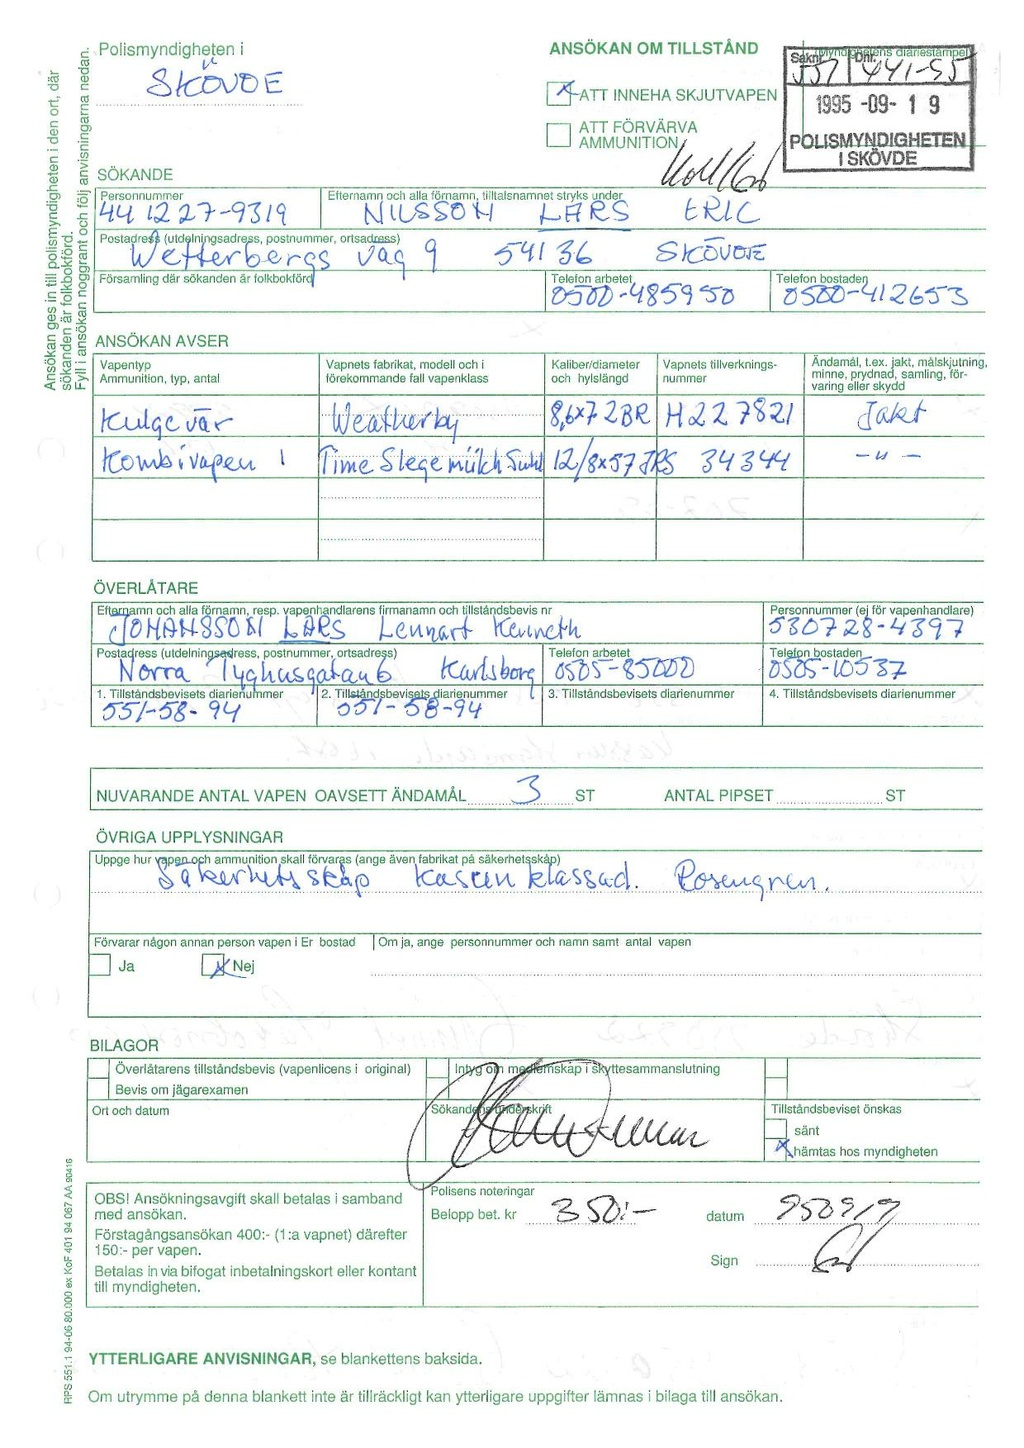 Polismyndigheten i
SKÖVDE
ANSÖKAN OM TILLSTÅND
ATT INNEHA SKJUTVAPEN
ATT FÖRVÄRVA
AMMUNITION
(Myndighetens diariestämpel)
Saknr. Dnr.
551 441-95
1995 -09- 1 9
POLISMYNDIGHETEN
I SKÖVDE
Ansökan ges in till polismyndigheten i den ort, där
sökanden är folkbokförd.
Fyll i ansökan noggrant och följ anvisningarna nedan.
SÖKANDE
Personnummer
441227-9319
Efternamn och alla förnamn, tilltalsnamnet stryks under
NILSSON LARS ERIC
Postadress (utdelningsadress, postnummer, ortsadress)
Wetterbergs väg 9 541 36 SKÖVDE
Församling där sökanden är folkbokförd
Telefon arbetet
0500-485950
Telefon bostaden
0500-412653
ANSÖKAN AVSER
Vapentyp
Ammunition, typ, antal
Vapnets fabrikat, modell och i
förekommande fall vapenklass
Kaliber/diameter
och hylslängd
Vapnets tillverknings-
nummer
Ändamål, t.ex. jakt, målskjutning,
minne, prydnad, samling, för-
varing eller skydd
Kulgevär Weatherby 8,6x72BR H227821 Jakt
Kombivapen 1 12/8x57JRS 34344 -"-
ÖVERLÅTARE
Efternamn och alla förnamn, resp. vapenhandlarens firmanamn och tillståndsbevis nr
JOHANSSON LARS Lennart Kenneth
Personnummer (ej för vapenhandlare)
530728-4397
Postadress (utdelningsadress, postnummer, ortsadress)
Norra Tyghusgatan 6 Karlsborg
Telefon arbetet
0505-85000
Telefon bostaden
0505-10537
1. Tillståndsbevisets diarienummer
551-58-94
2. Tillståndsbevisets diarienummer
551-58-94
3. Tillståndsbevisets diarienummer
4. Tillståndsbevisets diarienummer
NUVARANDE ANTAL VAPEN OAVSETT ÄNDAMÅL 3 ST ANTAL PIPSET ST
ÖVRIGA UPPLYSNINGAR
Uppge hur vapen och ammunition skall förvaras (ange även fabrikat på säkerhetsskåp)
Säkerhetsskåp klassad. Rosengren.
Förvarar någon annan person vapen i Er bostad
Om ja, ange personnummer och namn samt antal vapen
Ja Nej
BILAGOR
Överlåtarens tillståndsbevis (vapenlicens i original)
Intyg om medlemskap i skyttesammanslutning
Bevis om jägarexamen
Ort och datum
Sökandens underskrift
Tillståndsbeviset önskas
sänt
hämtas hos myndigheten
OBS! Ansökningsavgift skall betalas i samband
med ansökan.
Förstagångsansökan 400:- (1:a vapnet) därefter
150:- per vapen.
Betalas in via bifogat inbetalningskort eller kontant
till myndigheten.
Polisens noteringar
Belopp bet. kr 350:- datum 950919
Sign
RPS 551.1 94-06 80.000 ex KoF 401 94 067 AA 90416
YTTERLIGARE ANVISNINGAR, se blankettens baksida.
Om utrymme på denna blankett inte är tillräckligt kan ytterligare uppgifter lämnas i bilaga till ansökan.